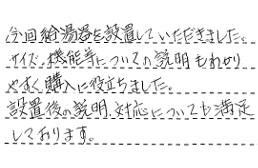 今回給湯器を設置していただきました。
サイズ、機能等についての説明もわかり
やすく購入に役立ちました。
設置後の説明、対応についても満足
しております。